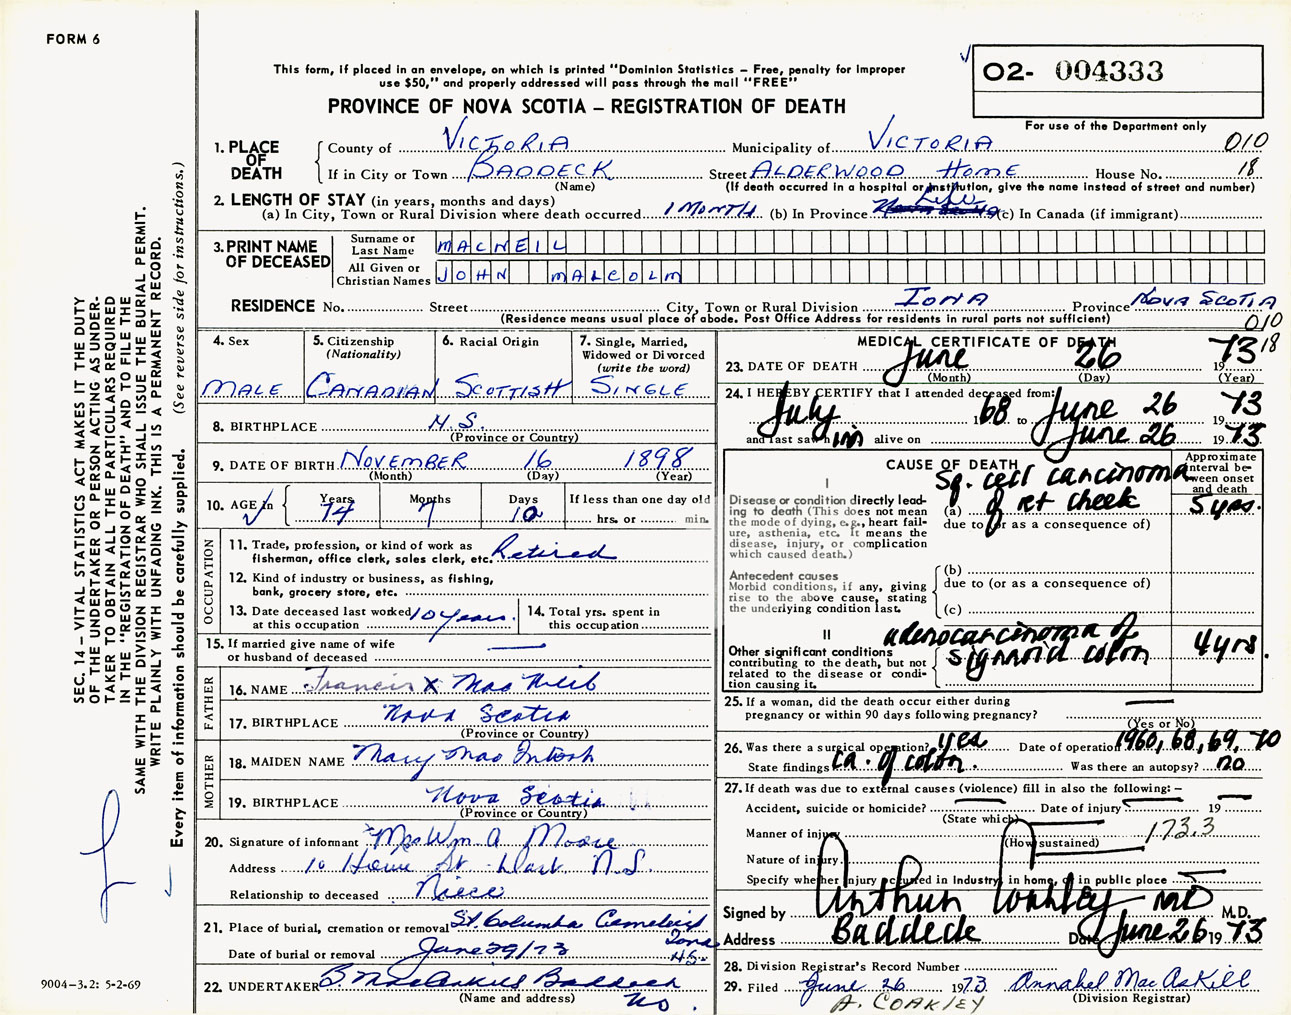 FORM 6
This form, if placed in an envelope, on which is printed "Dominion Statistics – Free, penalty for improper
use $50," and properly addressed will pass through the mail "FREE"
PROVINCE OF NOVA SCOTIA – REGISTRATION OF DEATH
02- 004333
For use of the Department only
010
18
1. PLACE OF DEATH
County of VICTORIA Municipality of VICTORIA
If in City or Town BADDECK Street ALDERWOOD HOME House No.
(Name) (If death occurred in a hospital or institution, give the name instead of street and number)
2. LENGTH OF STAY (in years, months and days)
(a) In City, Town or Rural Division where death occurred 1 MONTH (b) In Province Life (c) In Canada (if immigrant)
3. PRINT NAME OF DECEASED
Surname or Last Name MACNEIL
All Given or Christian Names JOHN MALCOLM
RESIDENCE No. Street City, Town or Rural Division IONA Province NOVA SCOTIA
(Residence means usual place of abode. Post Office Address for residents in rural parts not sufficient)
010
18
4. Sex
MALE
5. Citizenship
(Nationality)
CANADIAN
6. Racial Origin
SCOTTISH
7. Single, Married,
Widowed or Divorced
(write the word)
SINGLE
8. BIRTHPLACE N.S.
(Province or Country)
9. DATE OF BIRTH NOVEMBER 16 1898
(Month) (Day) (Year)
10. AGE in
Years 74
Months 7
Days 10
If less than one day old
hrs. or min.
OCCUPATION
11. Trade, profession, or kind of work as
fisherman, office clerk, sales clerk, etc. Retired
12. Kind of industry or business, as fishing,
bank, grocery store, etc.
13. Date deceased last worked
at this occupation 10 years.
14. Total yrs. spent in
this occupation
15. If married give name of wife
or husband of deceased
FATHER
16. NAME Francis X Mac Neil
17. BIRTHPLACE Nova Scotia
(Province or Country)
MOTHER
18. MAIDEN NAME Mary Mac Intosh
19. BIRTHPLACE Nova Scotia
(Province or Country)
20. Signature of informant Mrs Wm A Moore
Address 10 Howe St Dart N.S.
Relationship to deceased Niece
21. Place of burial, cremation or removal St. Columba Cemetery
Iona
N.S.
Date of burial or removal June 29/73
22. UNDERTAKER B. MacAskill Baddeck
(Name and address) NS.
MEDICAL CERTIFICATE OF DEATH
23. DATE OF DEATH June 26 1973
(Month) (Day) (Year)
24. I HEREBY CERTIFY that I attended deceased from:
July 1968 to June 26 1973
and last saw him alive on June 26 1973
CAUSE OF DEATH
Approximate
interval be-
tween onset
and death
I
Disease or condition directly lead-
ing to death (This does not mean
the mode of dying, e.g., heart fail-
ure, asthenia, etc. It means the
disease, injury, or complication
which caused death.)
Sq. cell carcinoma
(a) of Rt cheek 5 yrs.
due to (or as a consequence of)
Antecedent causes
Morbid conditions, if any, giving
rise to the above cause, stating
the underlying condition last.
(b)
due to (or as a consequence of)
(c)
II
Other significant conditions
contributing to the death, but not
related to the disease or condi-
tion causing it.
adenocarcinoma of
sigmoid colon 4 yrs.
25. If a woman, did the death occur either during
pregnancy or within 90 days following pregnancy?
(Yes or No)
26. Was there a surgical operation? yes Date of operation 1960, 68, 69, 70
State findings ca. of colon. Was there an autopsy? no
27. If death was due to external causes (violence) fill in also the following: –
Accident, suicide or homicide? Date of injury 19
(State which)
Manner of injury 173.3
(How sustained)
Nature of injury
Specify whether injury occurred in industry, in home, or in public place
Signed by M.D.
Address Baddeck Date June 26 1973
28. Division Registrar's Record Number
29. Filed June 26 1973 Annabel MacAskill
(Division Registrar)
A. COAKLEY
SEC. 14 – VITAL STATISTICS ACT MAKES IT THE DUTY
OF THE UNDERTAKER OR PERSON ACTING AS UNDER-
TAKER TO OBTAIN ALL THE PARTICULARS REQUIRED
IN THE "REGISTRATION OF DEATH" AND TO FILE THE
SAME WITH THE DIVISION REGISTRAR WHO SHALL ISSUE THE BURIAL PERMIT.
WRITE PLAINLY WITH UNFADING INK. THIS IS A PERMANENT RECORD.
Every item of information should be carefully supplied. (See reverse side for instructions.)
9004-3.2: 5-2-69